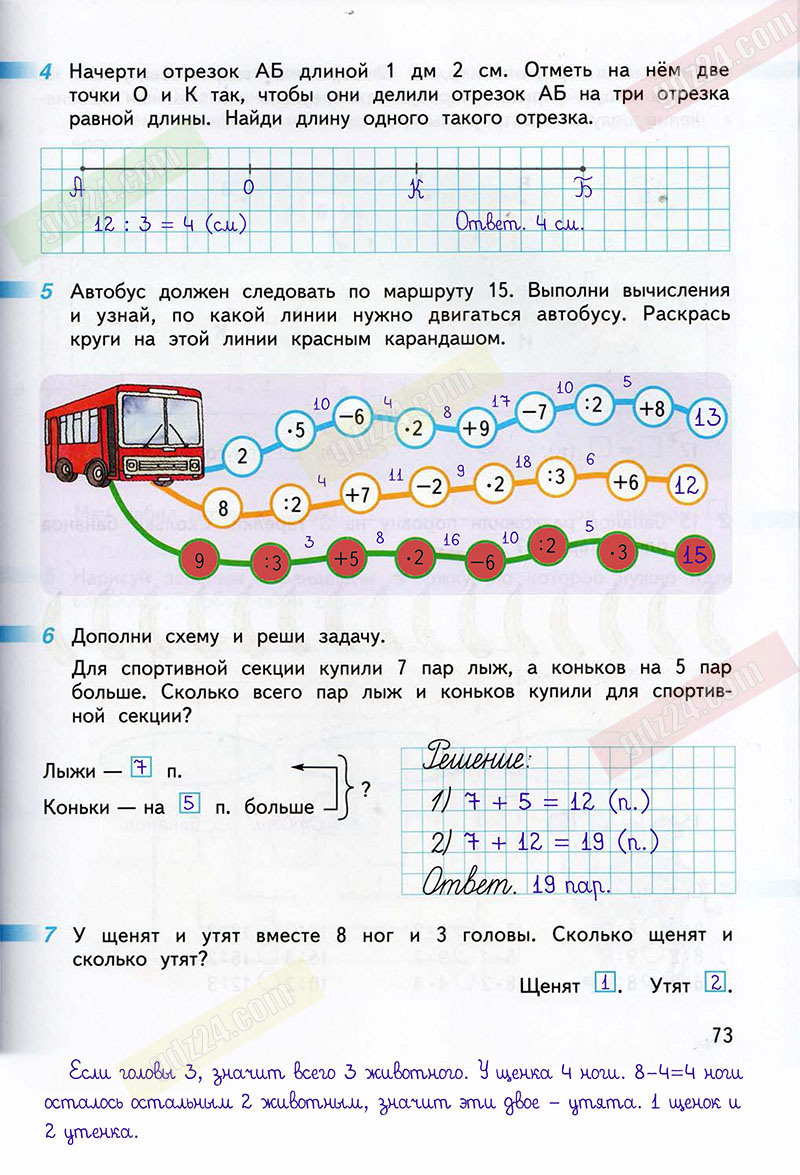 4 Начерти отрезок АБ длиной 1 дм 2 см. Отметь на нём две
точки О и К так, чтобы они делили отрезок АБ на три отрезка
равной длины. Найди длину одного такого отрезка.
А О К Б
12 : 3 = 4 (см) Ответ. 4 см.
5 Автобус должен следовать по маршруту 15. Выполни вычисления
и узнай, по какой линии нужно двигаться автобусу. Раскрась
круги на этой линии красным карандашом.
10 4 8 17 10 5
2 ·5 −6 ·2 +9 −7 :2 +8 13
4 11 9 18 6
8 :2 +7 −2 ·2 :3 +6 12
3 8 16 10 5
9 :3 +5 ·2 −6 :2 ·3 15
6 Дополни схему и реши задачу.
Для спортивной секции купили 7 пар лыж, а коньков на 5 пар
больше. Сколько всего пар лыж и коньков купили для спортив-
ной секции?
Лыжи — 7 п.
Коньки — на 5 п. больше ?
Решение:
1) 7 + 5 = 12 (п.)
2) 7 + 12 = 19 (п.)
Ответ. 19 пар.
7 У щенят и утят вместе 8 ног и 3 головы. Сколько щенят и
сколько утят?
Щенят 1. Утят 2.
73
Если головы 3, значит всего 3 животного. У щенка 4 ноги. 8-4=4 ноги
осталось остальным 2 животным, значит эти двое - утята. 1 щенок и
2 утенка.
gdz24.com
gdz24.com
gdz24.com
gdz24.com
gdz24.com